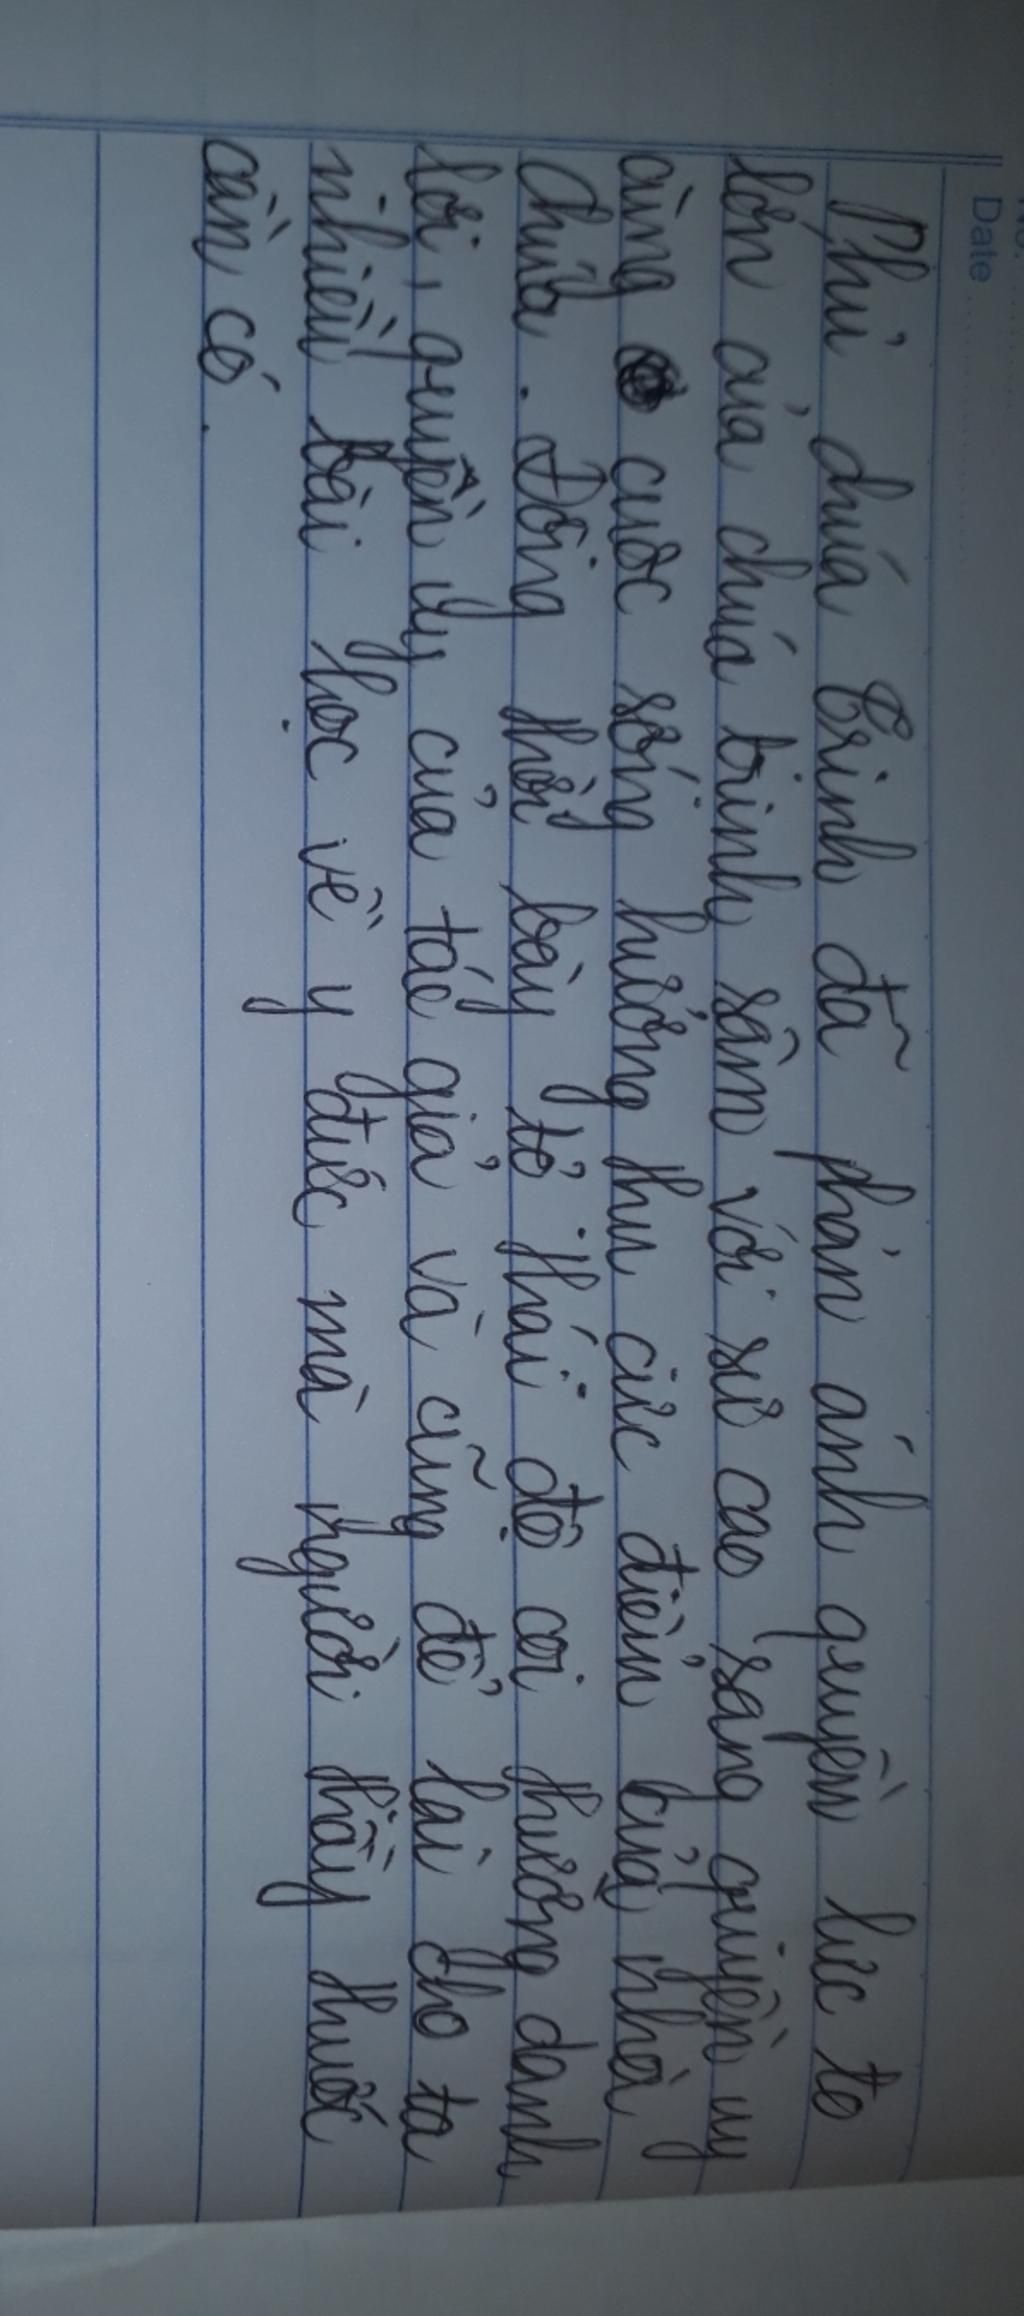 No.
Date
Phủ chúa Trịnh đã phản ánh quyền lực to
lớn của chúa trịnh, sâm với sự cao sang quyền uy
cùng cuộc sống hưởng thụ cực điểm của nhà
chúa. Đồng thời bày tỏ thái độ coi thường danh
lợi, quyền uy của tác giả và cũng để lại cho ta
nhiều bài học về y đức mà người thầy thuốc
cần có.